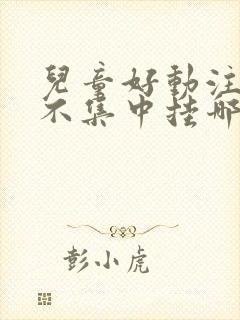 兒童好動注
不集中挂哪
彭小虎